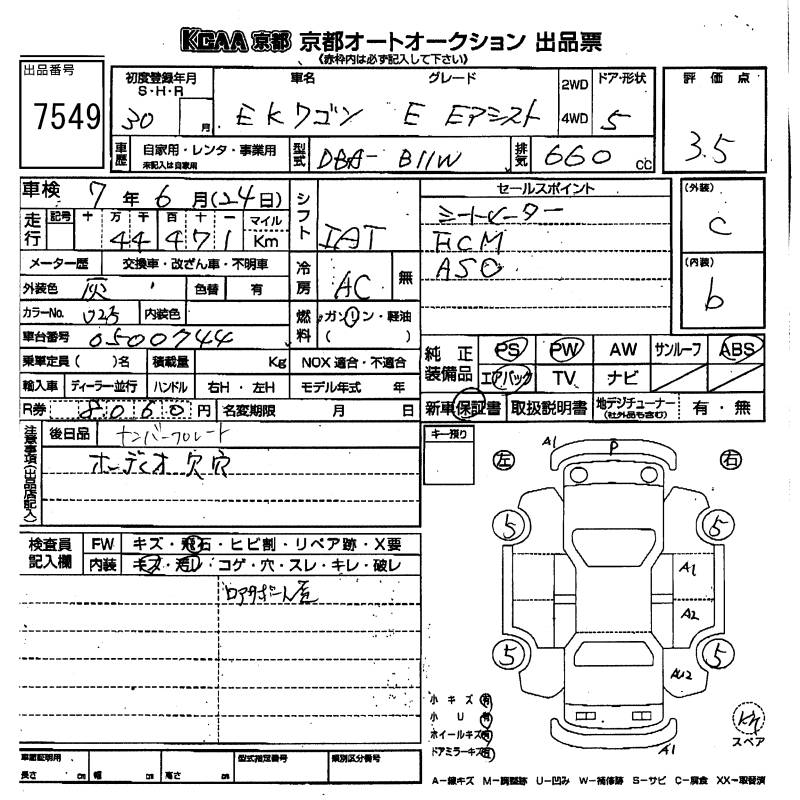 KCAA京都 京都オートオークション 出品票
(赤枠内は必ず記入して下さい)
出品番号
7549
初度登録年月
S・H・R
30 月
車名
グレード
EKワゴン E Eアシスト
2WD
4WD
ドア・形状
5
評価点
3.5
車歴
自家用・レンタ・事業用
未記入は自家用
型式
DBA- B11W
排気
660 CC
車検 7年6月(24日)
走行
記号 十 万 千 百 十 一 マイル
44471 Km
シフト
IAT
セールスポイント
ミートモーター
ECM
ASO
(外装)
C
(内装)
b
メーター歴 交換車・改ざん車・不明車
外装色 灰 色替 有
冷房
AC 無
カラーNo. U25 内装色
燃料
ガソリン・軽油
( )
車台番号 0500744
乗車定員( )名 積載量 Kg NOX適合・不適合
純正装備品
PS PW AW サンルーフ ABS
エアバック TV ナビ
輸入車 ディーラー並行 ハンドル 右H・左H モデル年式 年
R券 8060円 名変期限 月 日
新車保証書 取扱説明書 地デジチューナー(社外品も含む) 有・無
注意事項(出品店記入)
後日品 ナンバープレート
オーディオ穴穴
キー預り
A1 P
左 右
5 5
検査員記入欄
FW キズ・飛石・ヒビ割・リペア跡・X要
内装 キズ・汚レ・コゲ・穴・スレ・キレ・破レ
A1
A2
5 5
AU2
小キズ有
小U有
ホイールキズ有
ドアミラーキズ有
A1
スペア
車庫証明用
長さ cm 幅 cm 高さ cm
型式指定番号
類別区分番号
A−線キズ M−調整跡 U−凹み W−補修跡 S−サビ C−腐食 XX−取替済